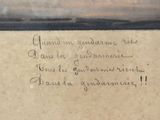 Quand un gendarme rit
Dans la gendarmerie
Tous les gendarmes rient
Dans la gendarmerie !!